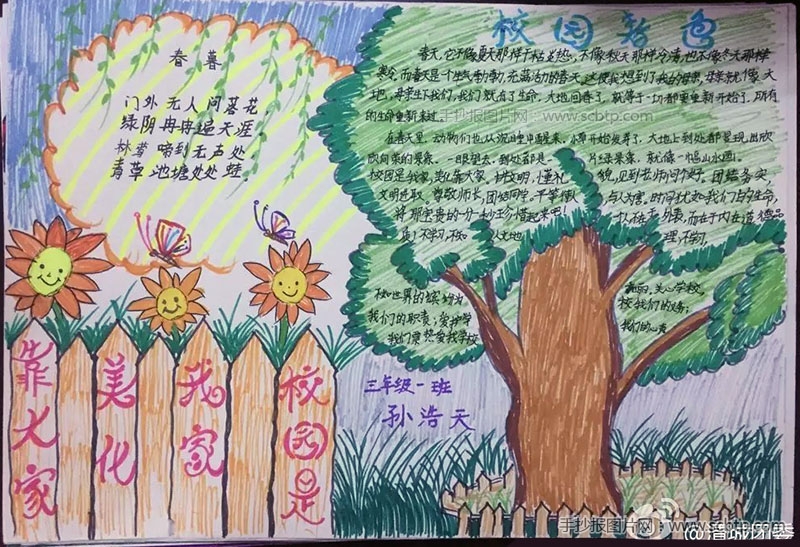 校园春色
春暮
门外无人问落花,
绿阴冉冉遍天涯,
林莺啼到无声处
青草池塘处处蛙。
春天,它不像夏天那样干枯炎热,不像秋天那样冷清,也不像冬天那样
寒冷,而春天是个生气勃勃,充满活力的春天,这使我想到了我的母亲,母亲就像大
地,母亲生下我们,我们就有了生命,大地回春了,就等于一切都要重新开始了,所有
的生命重新来过。
手抄报图片网:www.scbtp.com
在春天里,动物们也从沉睡中醒来,小草开始发芽了,大地上到处都呈现出欣
欣向荣的景象。一眼望去,到处都是一片绿景象,就像一幅山水画。
校园是我家,美化靠大家,讲文明,懂礼貌,见到老师问个好。团结务实
文明进取。尊敬师长,团结同学,平等待人与人为善,时间犹如我们的生命,
将那宝贵的一分一秒
校如世界的缤纷为
我们的职责;爱护学
热爱我学校
美丽,关心学校,
校我们的义务;
我们的心责
三年级一班
孙浩天
校园是
我家
美化
靠大家
手抄报图片网:www.scbtp.com